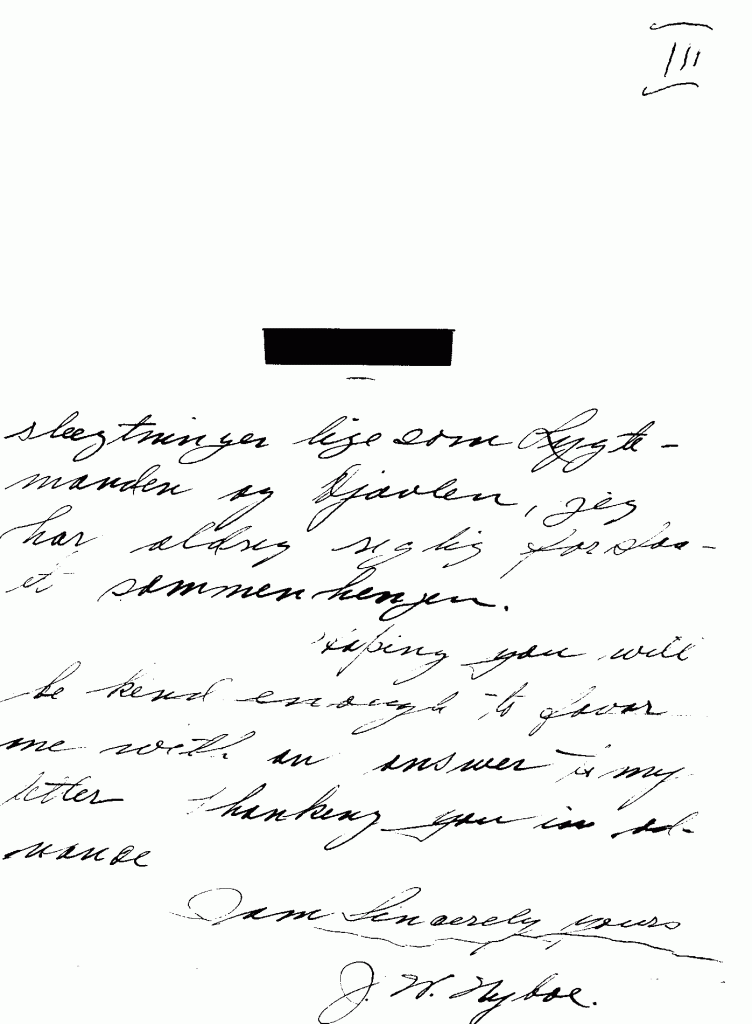 III
slægtninger lige som Lygte-
manden og Djævlen, jeg
har aldrig rigtig forstaa-
et sammenhengen.
Hoping you will
be kend enough to favor
me with an answer to my
letter thanking you in ad-
vance
I am Sincerely yours
J. W. Nyboe.